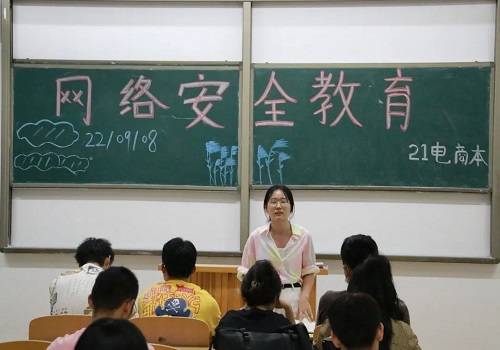 网络安全教育
22/09/08
21电商本